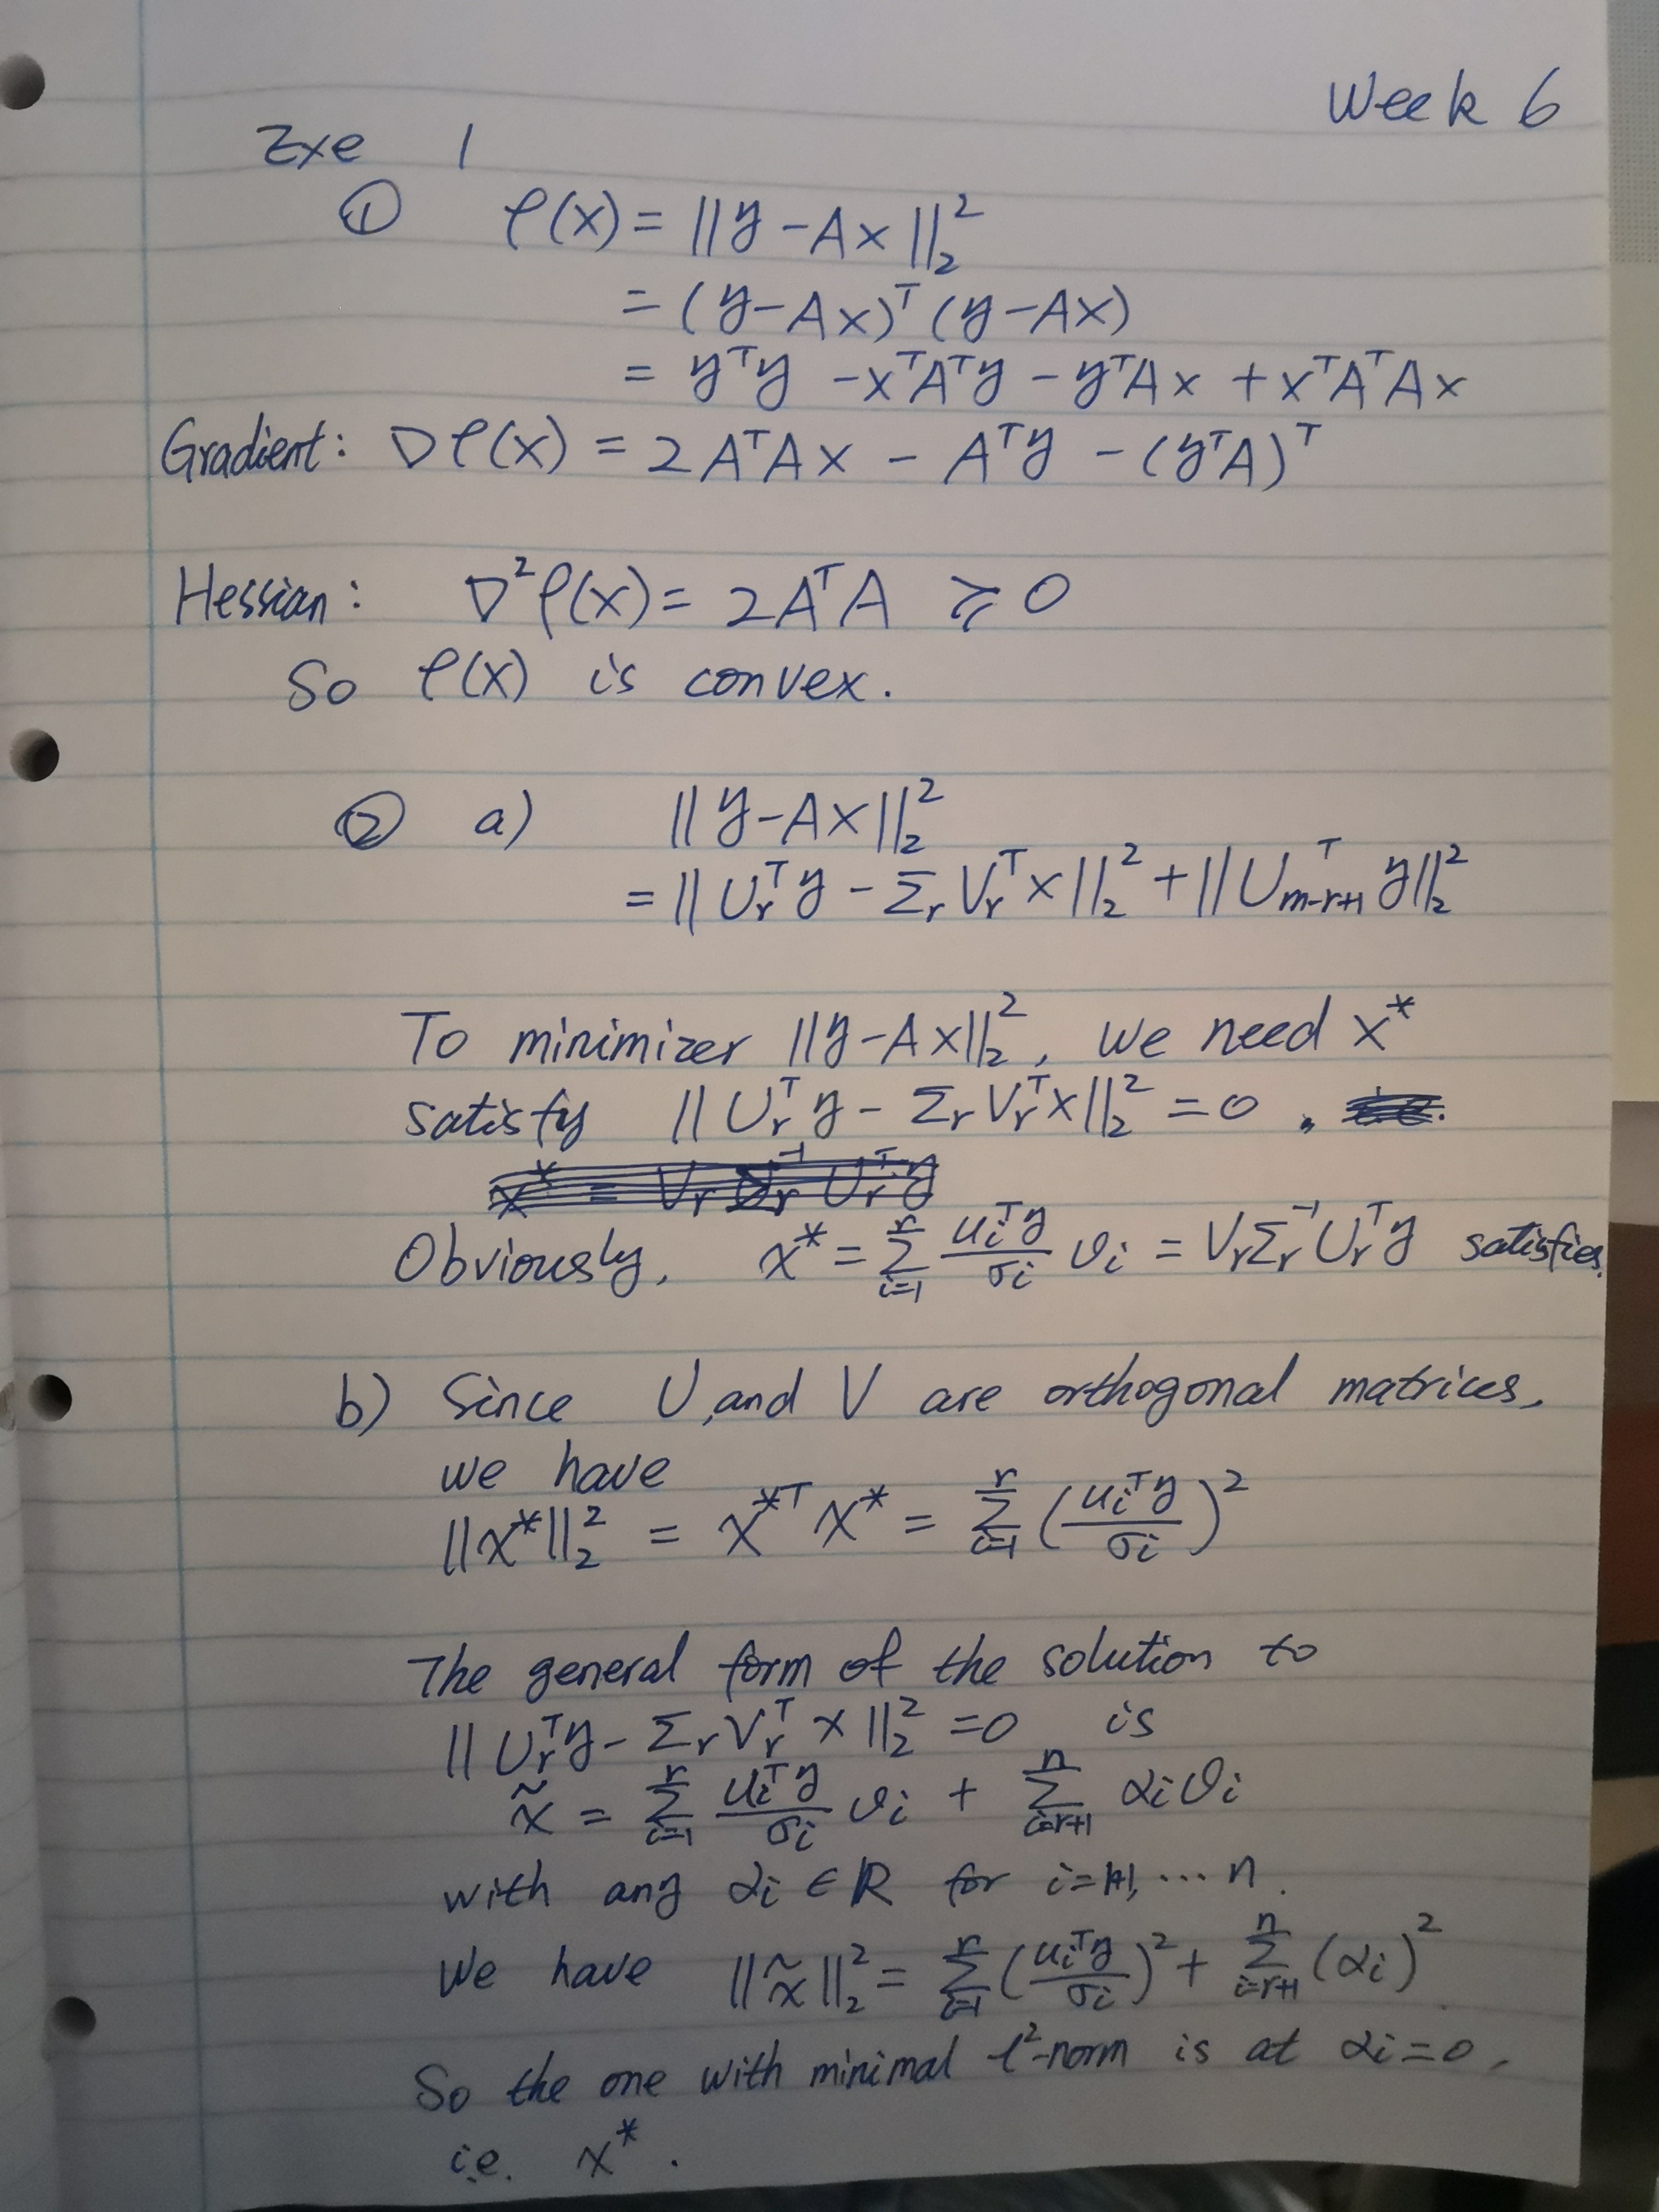 Week 6
Exe 1
① φ(x) = ||y - Ax||₂²
= (y - Ax)ᵀ(y - Ax)
= yᵀy - xᵀAᵀy - yᵀAx + xᵀAᵀAx
Gradient: ∇φ(x) = 2AᵀAx - Aᵀy - (yᵀA)ᵀ
Hessian: ∇²φ(x) = 2AᵀA ≽ 0
So φ(x) is convex.
② a) ||y - Ax||₂²
= ||Uᵣᵀy - Σᵣ Vᵣᵀx||₂² + ||Uₘ₋ᵣ₊₁ᵀ y||₂²
To minimizer ||y - Ax||₂², we need x*
satisfy ||Uᵣᵀy - Σᵣ Vᵣᵀx||₂² = 0,
x* = Vᵣ Σᵣ⁻¹ Uᵣᵀy
Obviously, x* = Σᵢ₌₁ʳ (uᵢᵀy / σᵢ) vᵢ = VᵣΣᵣ⁻¹Uᵣᵀy satisfies.
b) Since U, and V are orthogonal matrices,
we have
||x*||₂² = x*ᵀx* = Σᵢ₌₁ʳ (uᵢᵀy / σᵢ)²
The general form of the solution to
||Uᵣᵀy - ΣᵣVᵣᵀx||₂² = 0 is
x̃ = Σᵢ₌₁ʳ (uᵢᵀy / σᵢ) vᵢ + Σᵢ₌ᵣ₊₁ⁿ αᵢvᵢ
with any αᵢ ∈ ℝ for i = r+1, ... n.
We have ||x̃||₂² = Σᵢ₌₁ʳ (uᵢᵀy / σᵢ)² + Σᵢ₌ᵣ₊₁ⁿ (αᵢ)²
So the one with minimal ℓ²-norm is at αᵢ = 0,
i.e. x*.